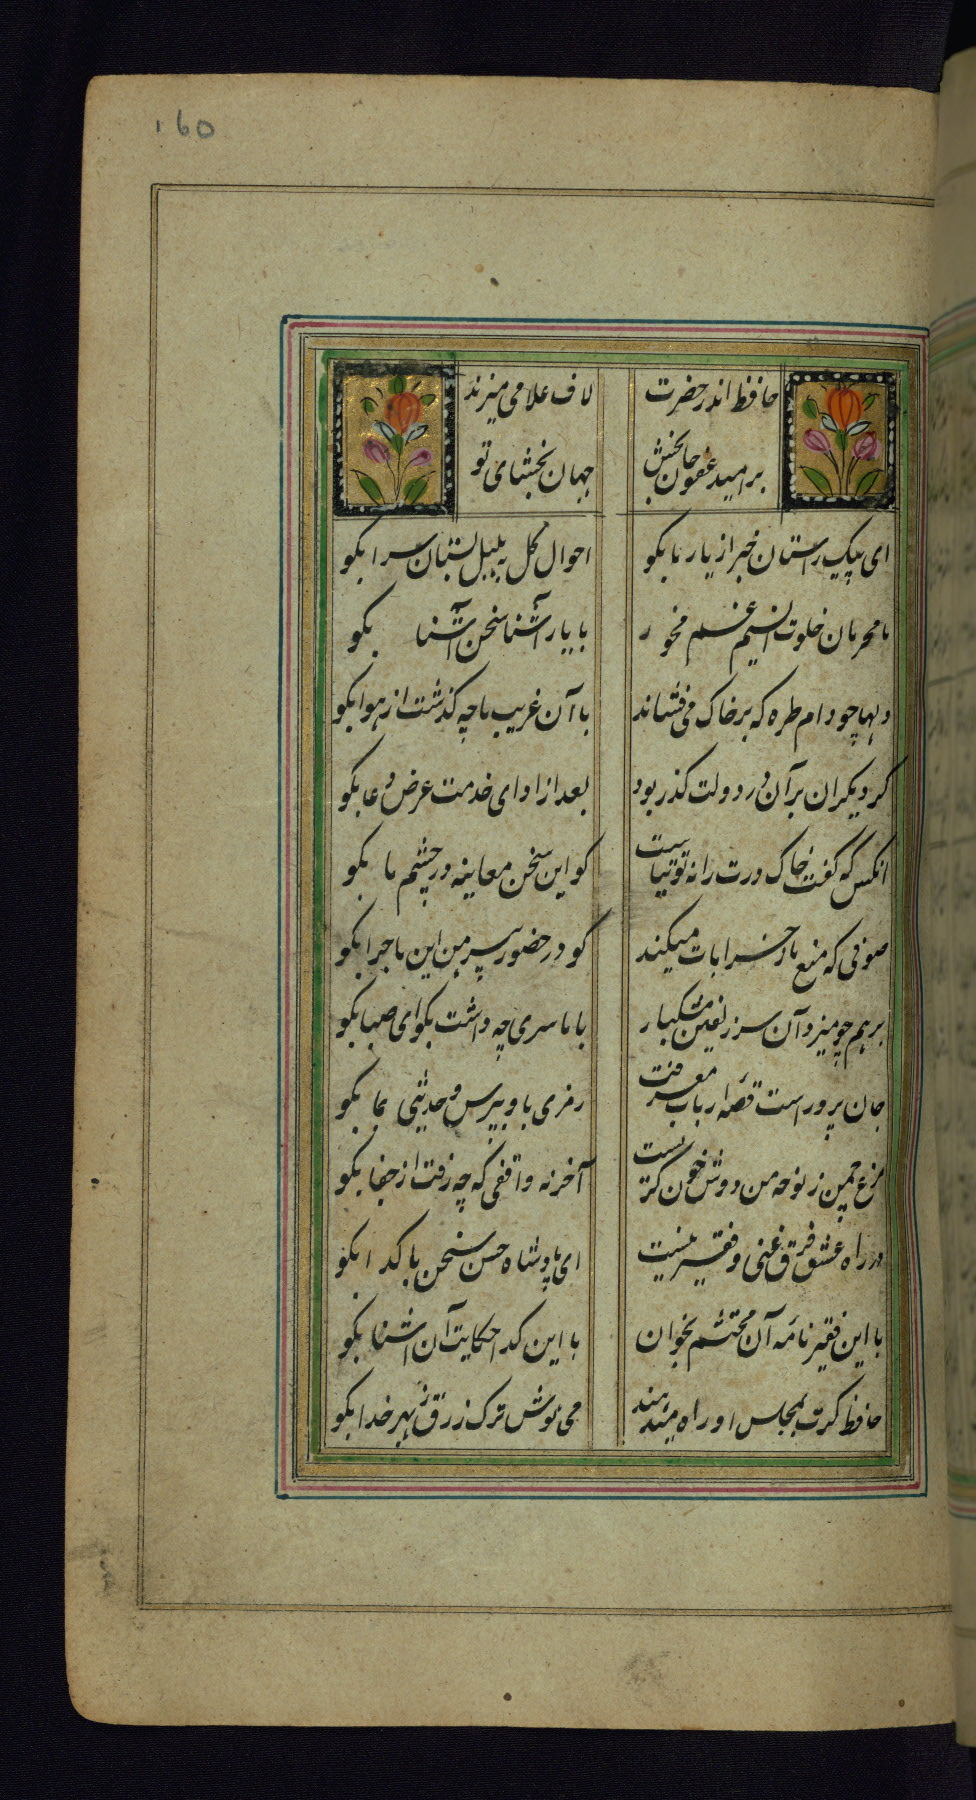 ۱۶۵
حافظ اندر حضرت لاف غلامی میزند
بر امید عفو جان بخش جهان بخشای تو
ای پیک راستان خبر از یار ما بکو احوال کل ببلبل بستان سرا بکو
ما محرمان خلوت انسیم غم مخور با یار آشنا سخن آشنا بکو
دلها چو دام طره که بر خاک می فشاند با آن غریب ما چه کذشت از هوا بکو
کر دیکران بر آن در دولت کذر بود بعد از ادای خدمت عرض دعا بکو
انکس که گفت خاک درت را نه توتیاست کو این سخن معاینه در چشم ما بکو
صوفی که منع ما ز خرابات میکند کو در حضور پیر من این ماجرا بکو
بر هم چو میزد آن سر زلفین مشکبار با ما سری چه داشت بکو ای صبا بکو
جان پرور است قصهٔ ارباب معرفت رمزی با و بپرس و حدیثی بما بکو
مرغ چمن ز نوحه من دوش خون کریست آخر نه واقفی که چه رفت از جفا بکو
در راه عشق فرق غنی و فقیر نیست ای پادشاه حسن سخن با کدا بکو
با این فقیر نامه آن محتشم بخوان با این کدا حکایت آن اشنا بکو
حافظ کرت بمجلس او راه میدهند می نوش ترک زرق ز بهر خدا بکو